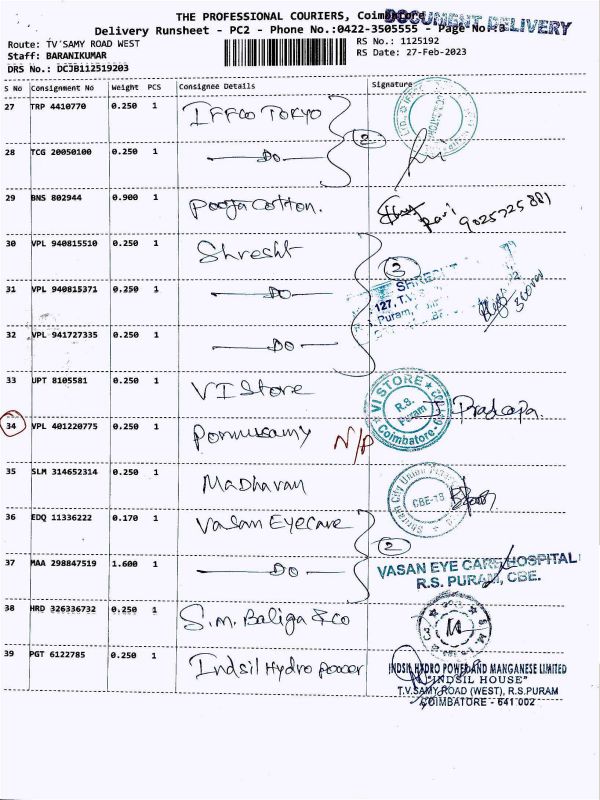 THE PROFESSIONAL COURIERS, Coimbatore
DOCUMENT DELIVERY
Delivery Runsheet - PC2 - Phone No.:0422-3505555 - Page No.:3
Route: TV'SAMY ROAD WEST
RS No.: 1125192
Staff: BARANIKUMAR
RS Date: 27-Feb-2023
DRS No.: DCJB112519203
S No Consignment No Weight PCS Consignee Details Signature
27 TRP 4410770 0.250 1 IFFCO TOKYO
2
28 TCG 20050100 0.250 1 DO
29 BNS 802944 0.900 1 Pooja Cotton. Ravi 9025725881
30 VPL 940815510 0.250 1 Shresht
3
31 VPL 940815371 0.250 1 DO
127, T.V.S
R.S. Puram,
32 VPL 941727335 0.250 1 DO
33 UPT 8105581 0.250 1 VI Store
VI STORE R.S. Puram Coimbatore
34 VPL 401220775 0.250 1 Ponnusamy N/P
35 SLM 314652314 0.250 1 Madhavan
CBE-18
36 EDQ 11336222 0.170 1 Vasan Eyecare
2
37 MAA 298847519 1.600 1 DO
VASAN EYE CARE HOSPITAL
R.S. PURAM, CBE.
38 HRD 326336732 0.250 1 S.M. Baliga & Co
39 PGT 6122785 0.250 1 Indsil Hydro power
INDSIL HYDRO POWER AND MANGANESE LIMITED
"INDSIL HOUSE"
T.V.SAMY ROAD (WEST), R.S.PURAM
COIMBATORE - 641 002